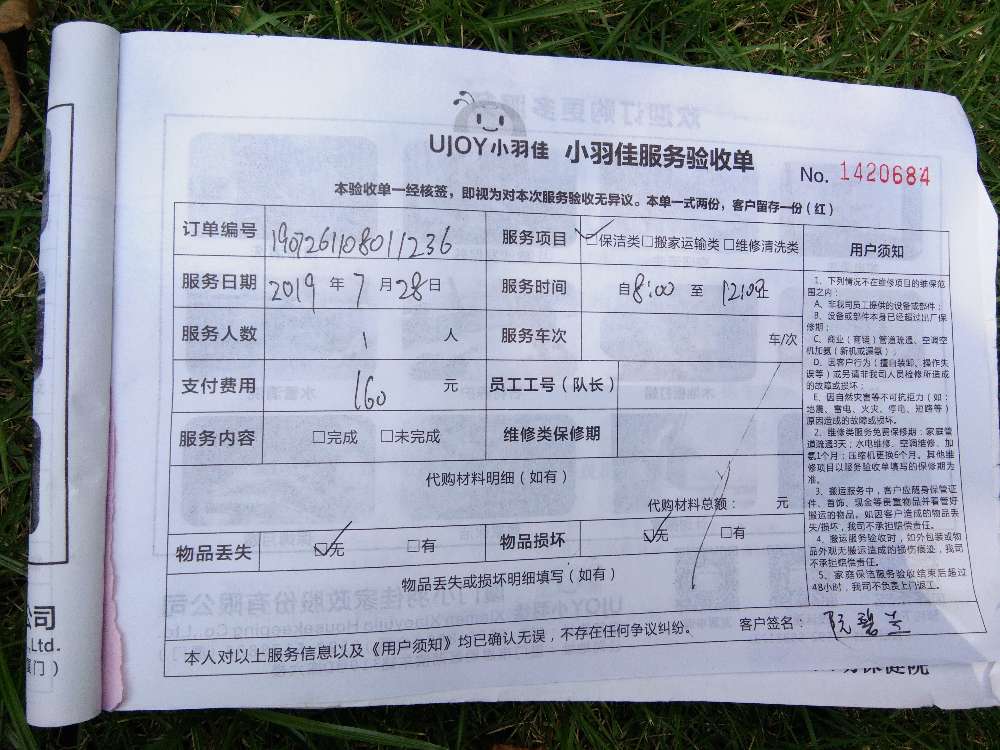 UJOY小羽佳 小羽佳服务验收单
No. 1420684
本验收单一经核签，即视为对本次服务验收无异议。本单一式两份，客户留存一份(红)
订单编号 190726110801 1236 服务项目 ☑保洁类□搬家运输类□维修清洗类
服务日期 2019 年 7 月 28 日 服务时间 自 8:00 至 12:00止
服务人数 1 人 服务车次 车/次
支付费用 160 元 员工工号（队长）
服务内容 □完成 □未完成 维修类保修期
代购材料明细（如有）
代购材料总额： 元
物品丢失 ☑无 □有 物品损坏 ☑无 □有
物品丢失或损坏明细填写（如有）
本人对以上服务信息以及《用户须知》均已确认无误，不存在任何争议纠纷。 客户签名： 阮碧兰
用户须知
1、下列情况不在维修项目的维保范
围之内：
A、非我司员工提供的设备或部件；
B、设备或部件本身已经超过出厂保
修期；
C、商业（商铺）管道疏通、空调空
机加氨（新机或漏氨）；
D、因客户行为（擅自装卸、操作失
误等）或另请非我司人员检修所造成
的故障或损坏；
E、因自然灾害等不可抗拒力（如：
地震、雷电、火灾、停电、短路等）
原因造成的故障或损坏。
2、维修类服务免费保修期：家庭管
道疏通3天；水电维修、空调维修、加
氨1个月；压缩机更换6个月。其他维
修项目以服务验收单填写的保修期为
准。
3、搬运服务中，客户应随身保管证
件、首饰、现金等贵重物品并看管好
搬运的物品。如因客户造成的物品丢
失/损坏，我司不承担赔偿责任。
4、搬运服务验收时，如外包装或物
品外观无搬运造成的损伤痕迹，我司
不承担赔偿责任。
5、家庭保洁服务验收结束后超过
48小时，我司不负责上门返工。
公司
,Ltd.
厦门）
保健院